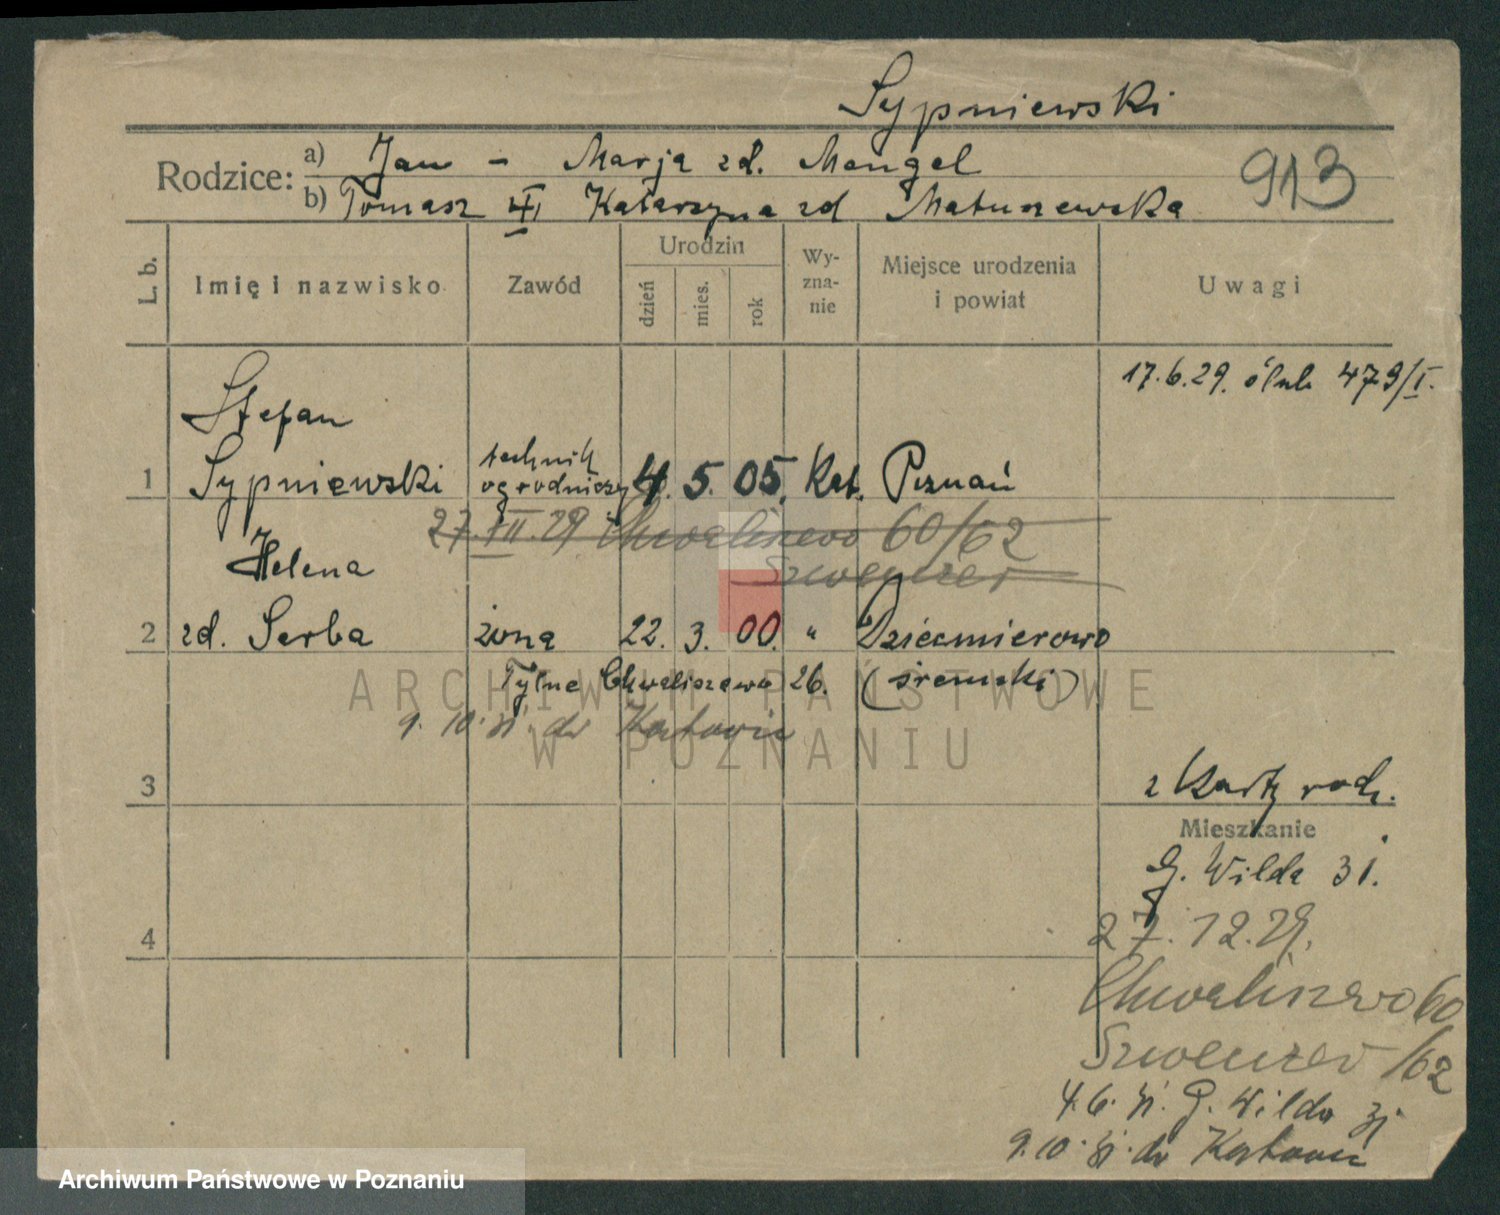 Sypniewski
Rodzice: a) Jan - Marja zd. Mengel
913
b) Tomasz Katarzyna zd Matuszewska
L. b.
Imię i nazwisko
Zawód
Urodzin
dzień
mies.
rok
Wy-
zna-
nie
Miejsce urodzenia
i powiat
Uwagi
17.6.29. ślub 479/I.
Stefan
1 Sypniewski technik
ogrodniczy 4. 5. 05. Kat. Poznań
27.XII.29 Chwaliszewo 60/62
Helena
2 zd. Serba żona 22. 3. 00. " Dziećmierowo
Tylne Chwaliszewo 26. (śremski)
ARCHIWUM PAŃSTWOWE
W POZNANIU
9.10.31. do Katowic
3
z Karty rodz.
Mieszkanie
G. Wilda 31.
27.12.29.
4
Chwaliszewo 60
/62
4.6.31. G. Wilda 31
9.10.31. do Katowic
Archiwum Państwowe w Poznaniu